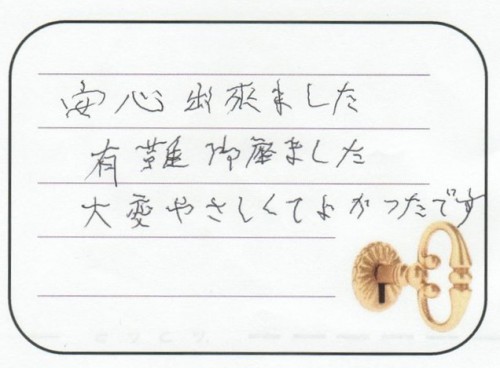 安心出來ました
有難御座ました
大変やさしくてよかつたです